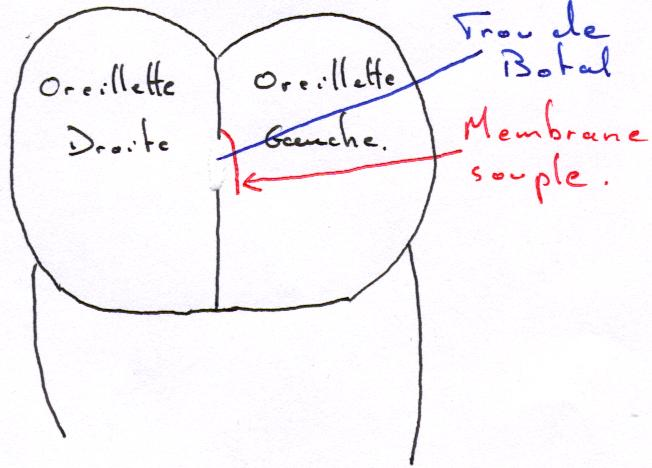 Oreillette
Droite
Oreillette
Gauche.
Trou de
Botal
Membrane
souple.